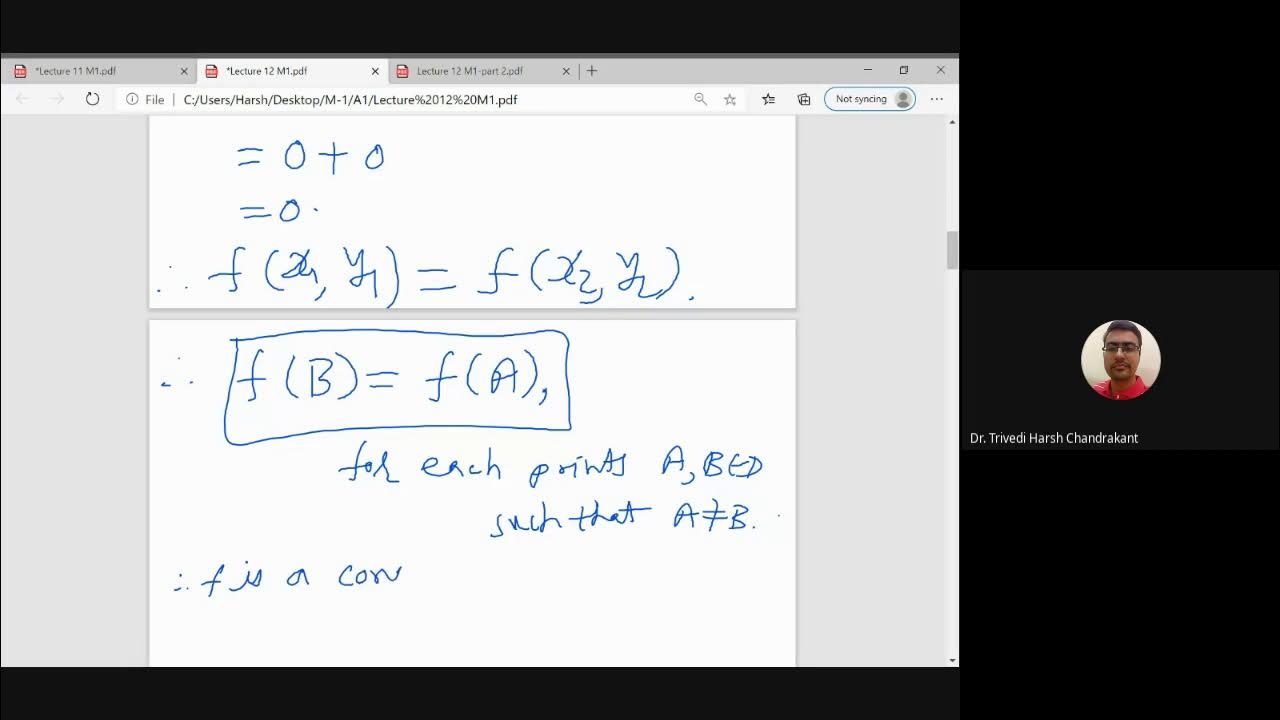 *Lecture 11 M1.pdf
*Lecture 12 M1.pdf
Lecture 12 M1-part 2.pdf
File | C:/Users/Harsh/Desktop/M-1/A1/Lecture%2012%20M1.pdf
Not syncing
= 0 + 0
= 0.
∴ f(x₁, y₁) = f(x₂, y₂).
∴ f(B) = f(A),
for each points A, B ∈ D
such that A ≠ B.
∴ f is a con
Dr. Trivedi Harsh Chandrakant